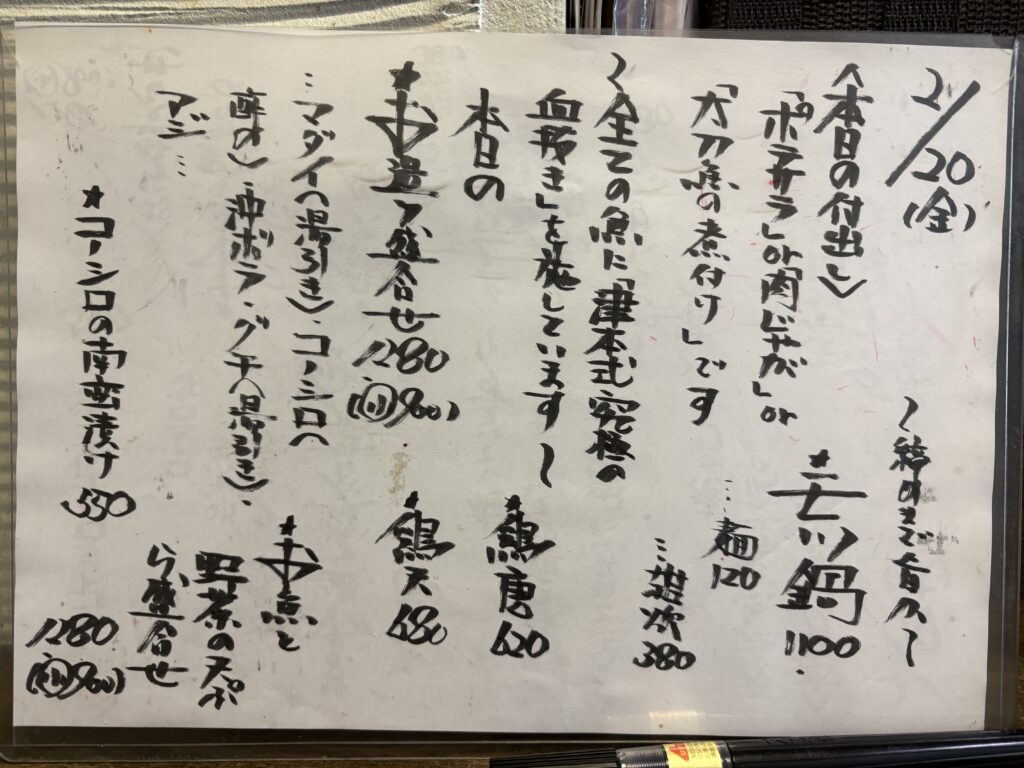 2/20(金)
〈本日の付出し〉
「ポテサラ」or「肉じゃが」or
「太刀魚の煮付け」です
〜全ての魚に「津本式究極の
血抜き」を施しています〜
本日の
★お造り盛合せ 1280
(小960)
…マダイ(湯引き)・コノシロ(
酢〆)・沖ボラ・グチ(湯引き)・
アジ…
★コノシロの南蛮漬け 550
〜締めまで旨い〜
★モツ鍋 1100
…麺 120
…雑炊 380
★鶏唐 620
★鶏天 680
★お魚と
野菜の天ぷ
ら盛合せ
1280
(小960)